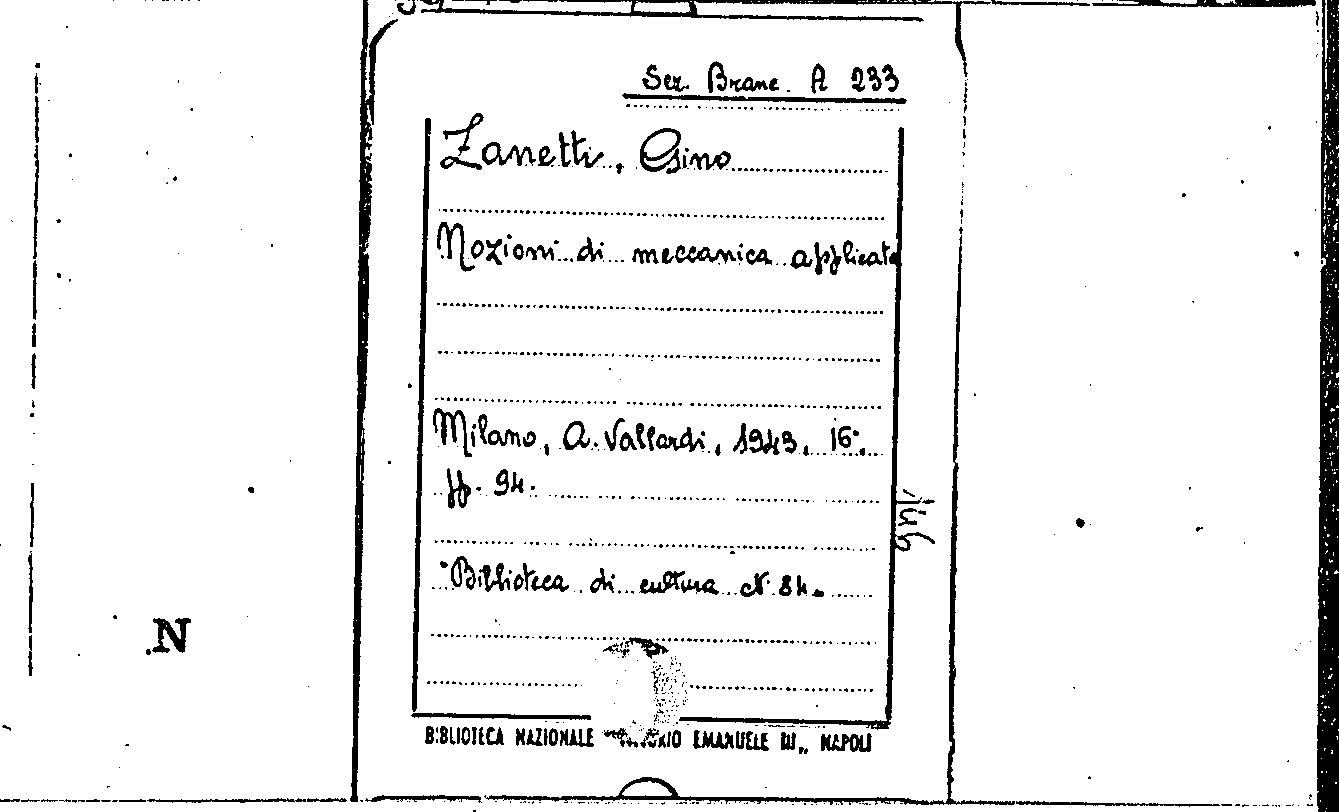 Sez. Branc. A 233
Zanetti, Gino
Nozioni di meccanica applicata
Milano, A. Vallardi, 1943, 16°,
pp. 94.
Biblioteca di cultura N. 84.
N
BIBLIOTECA NAZIONALE EMANUELE III,, NAPOLI